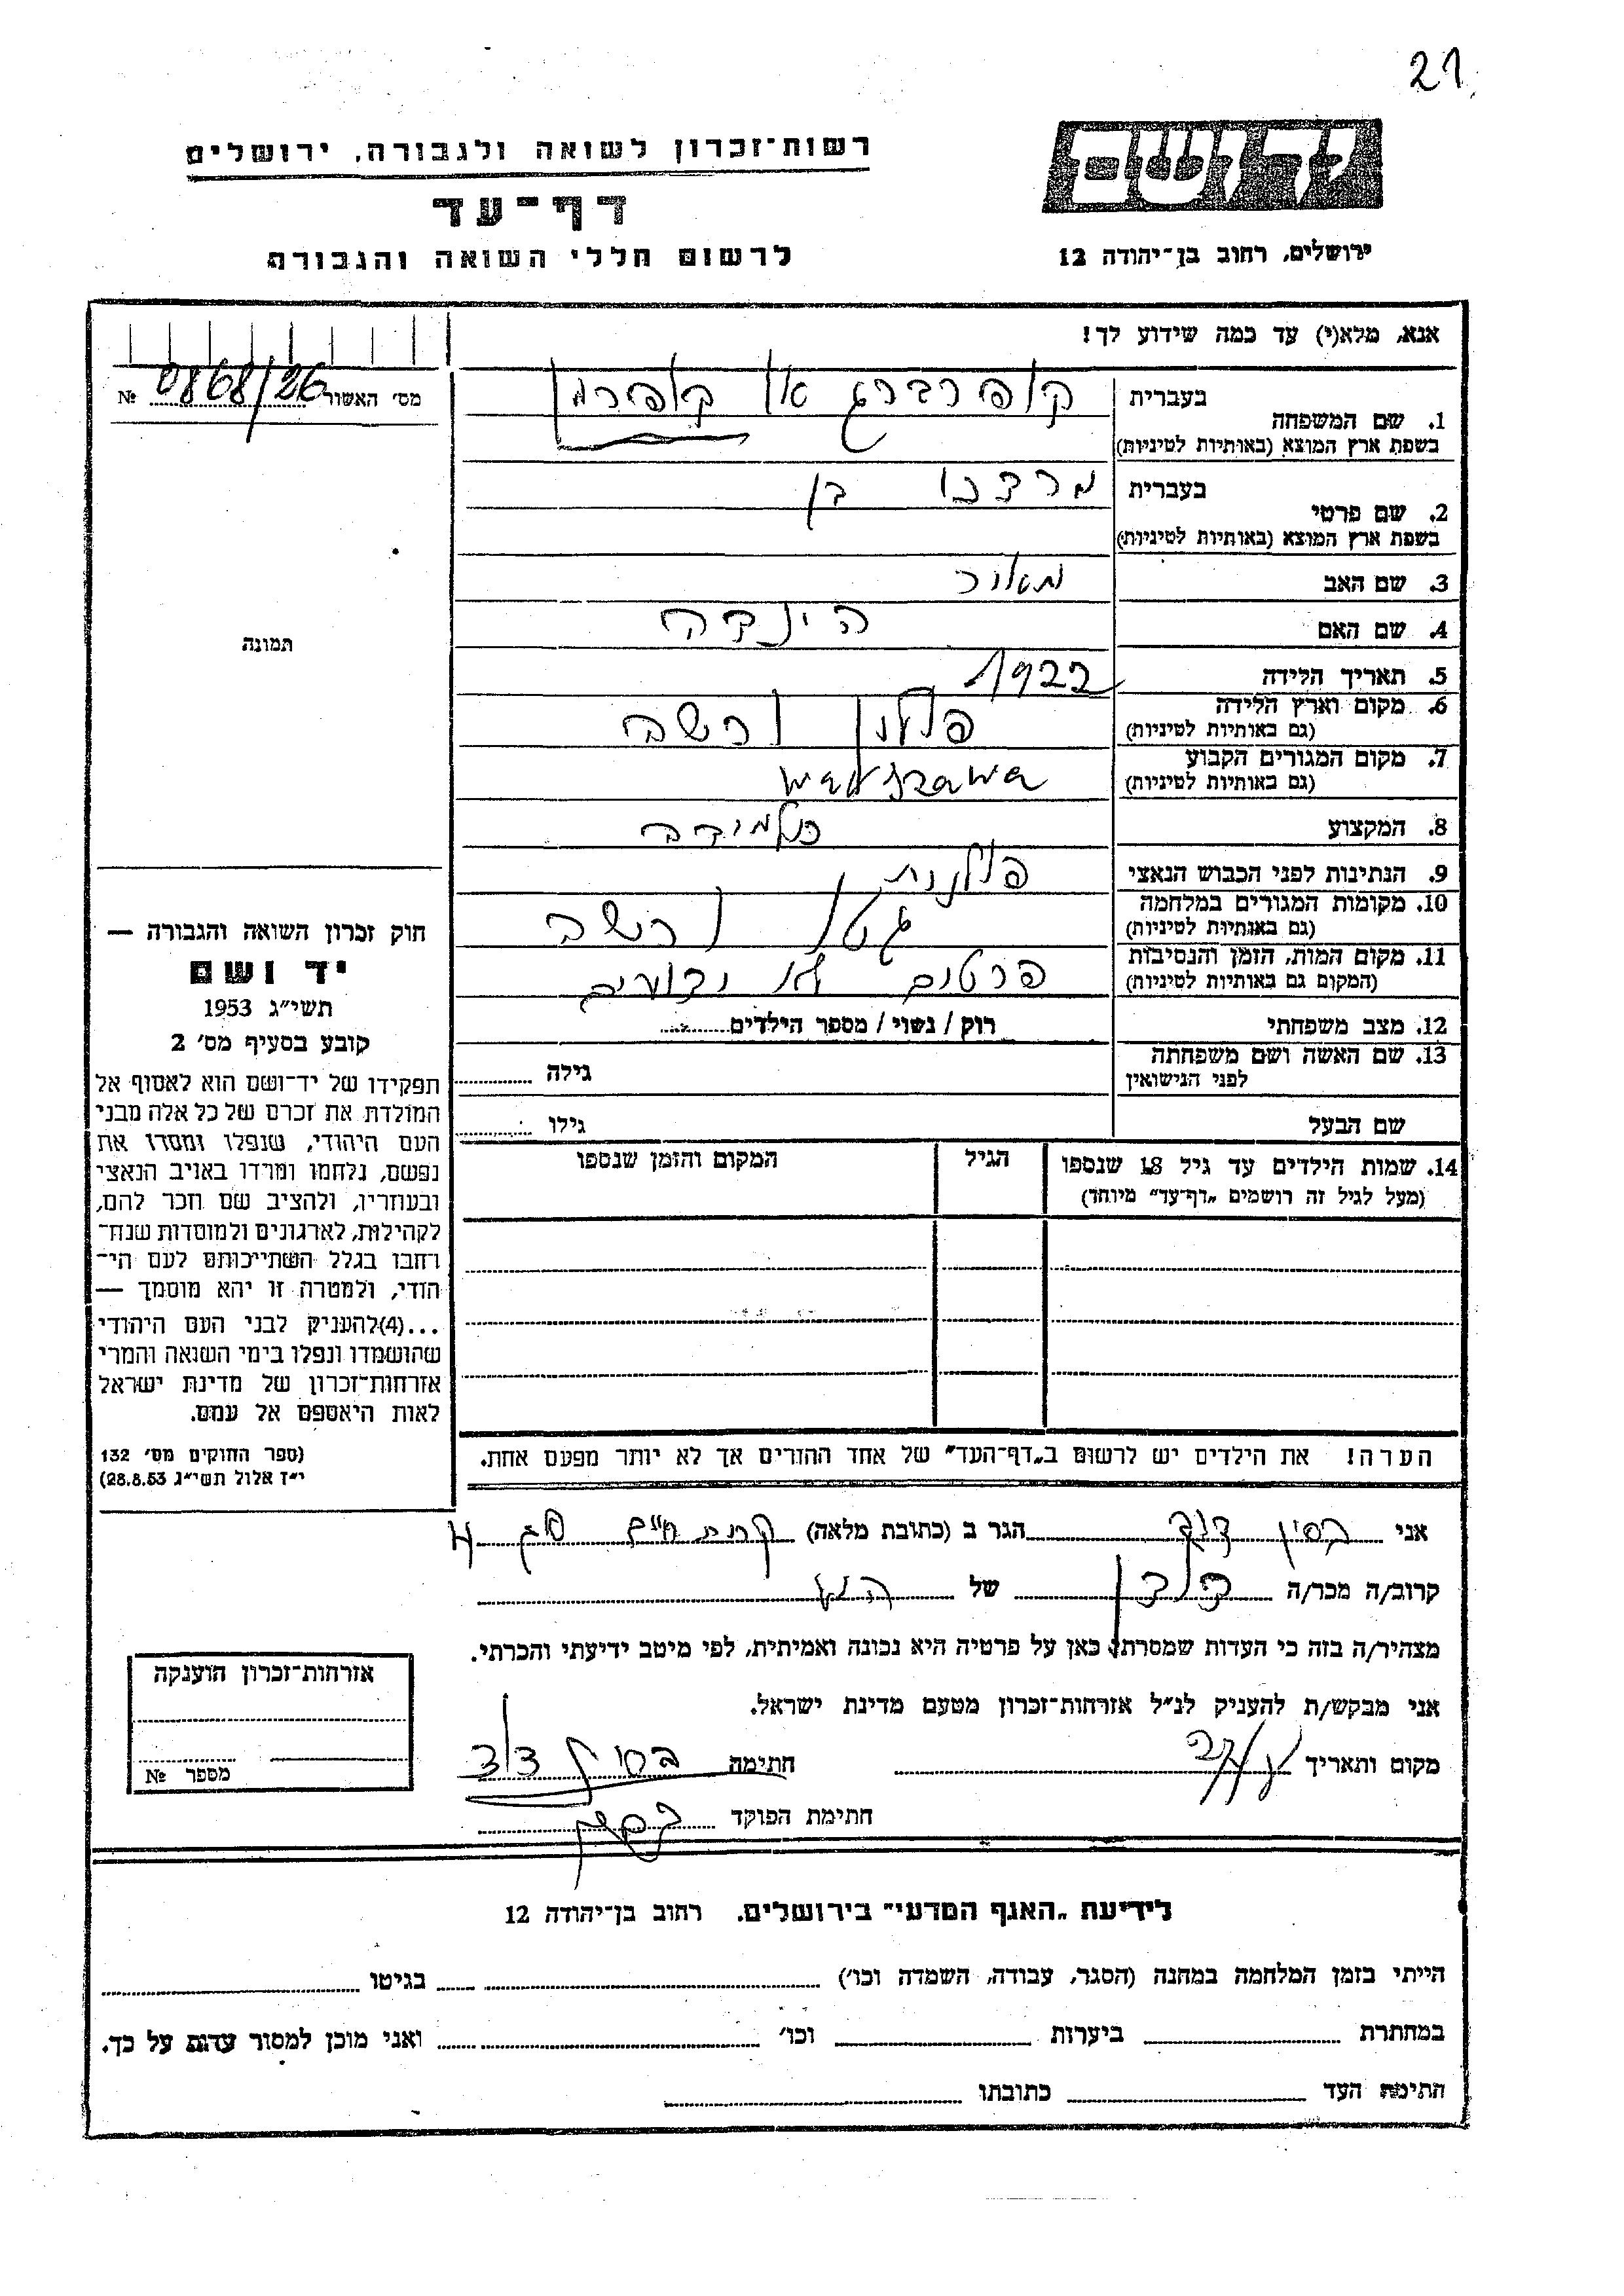 21
רשות־זכרון לשואה ולגבורה, ירושלים
דף־עד
לרשום חללי השואה והגבורה
יד ושם
ירושלים, רחוב בן־יהודה 12
אנא, מלא(י) עד כמה שידוע לך!
מס׳ האשור 0868/26 №
1. שם המשפחה
בעברית קופרברג או
בשפת ארץ המוצא (באותיות לטיניות)
2. שם פרטי
בעברית בן
בשפת ארץ המוצא (באותיות לטיניות)
3. שם האב
4. שם האם הינדה
5. תאריך הלידה 1922
6. מקום וארץ הלידה פולין ורשה
(גם באותיות לטיניות)
7. מקום המגורים הקבוע Warszawa
(גם באותיות לטיניות)
8. המקצוע
9. הנתינות לפני הכבוש הנאצי פולנית
10. מקומות המגורים במלחמה גטו ורשה
(גם באותיות לטיניות)
11. מקום המות, הזמן והנסיבות פרטים לא ידועים
(המקום גם באותיות לטיניות)
12. מצב משפחתי רוק / נשוי / מספר הילדים
13. שם האשה ושם משפחתה
לפני הנישואין גילה
שם הבעל גילו
14. שמות הילדים עד גיל 18 שנספו הגיל המקום והזמן שנספו
(מעל לגיל זה רושמים „דף־עד” מיוחד)
הערה! את הילדים יש לרשום ב„דף־העד” של אחד ההורים אך לא יותר מפעם אחת.
תמונה
חוק זכרון השואה והגבורה —
יד ושם
תשי״ג 1953
קובע בסעיף מס׳ 2
תפקידו של יד־ושם הוא לאסוף אל
המולדת את זכרם של כל אלה מבני
העם היהודי, שנפלו ומסרו את
נפשם, נלחמו ומרדו באויב הנאצי
ובעוזריו, ולהציב שם וזכר להם,
לקהילות, לארגונים ולמוסדות שנח־
רחבו בגלל השתייכותם לעם הי־
הודי, ולמטרה זו יהא מוסמך —
...(4) להעניק לבני העם היהודי
שהושמדו ונפלו בימי השואה והמרי
אזרחות־זכרון של מדינת ישראל
לאות היאספם אל עמם.
(ספר החוקים מס׳ 132
י״ז אלול תשי״ג 28.8.53)
אני בסין דוד הגר ב (כתובת מלאה) קרית חיים
קרוב/ה מכר/ה של
מצהיר/ה בזה כי העדות שמסרתי כאן על פרטיה היא נכונה ואמיתית, לפי מיטב ידיעתי והכרתי.
אני מבקש/ת להעניק לנ״ל אזרחות־זכרון מטעם מדינת ישראל.
מקום ותאריך חתימה בסין דוד
חתימת הפוקד
אזרחות־זכרון הוענקה
מספר №
לידיעת „האגף המדעי” בירושלים. רחוב בן־יהודה 12
הייתי בזמן המלחמה במחנה (הסגר, עבודה, השמדה וכו׳) בגיטו
במחתרת ביערות וכו׳ ואני מוכן למסור עדות על כך.
חתימת העד כתובתו